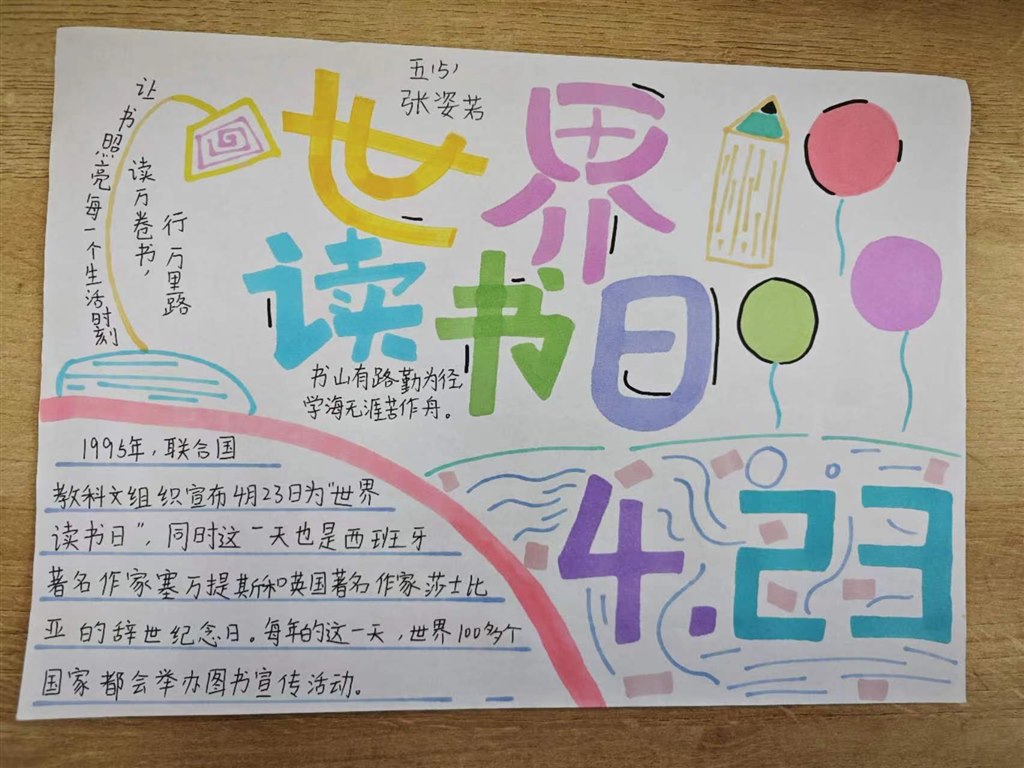 五(5)
张姿若
世界
读书日
让书照亮每一个生活时刻
读万卷书，
行万里路
书山有路勤为径
学海无涯苦作舟。
1995年，联合国
教科文组织宣布4月23日为“世界
读书日”，同时这一天也是西班牙
著名作家塞万提斯和英国著名作家莎士比
亚的辞世纪念日。每年的这一天，世界100多个
国家都会举办图书宣传活动。
4.23